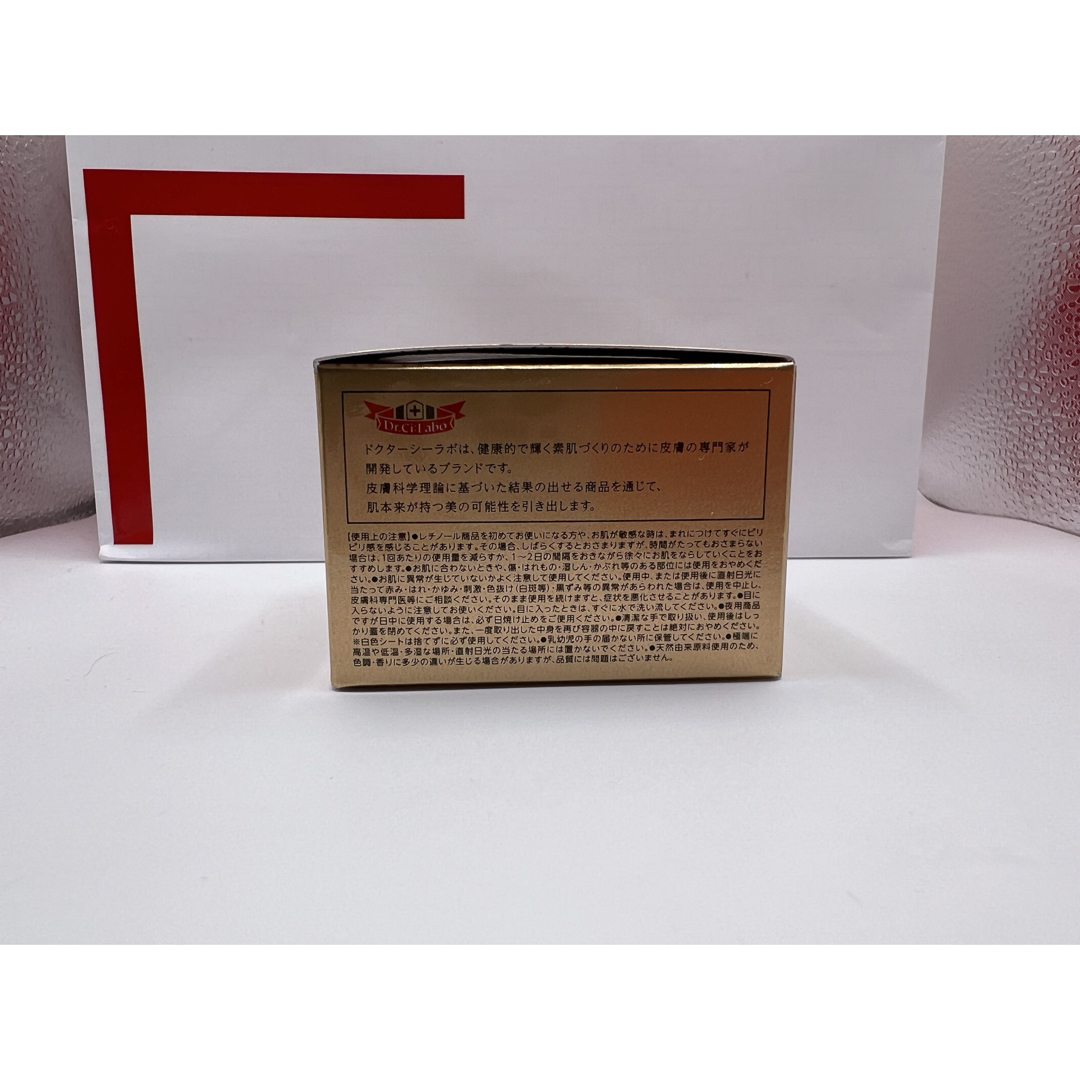 Dr.Ci:Labo
ドクターシーラボは、健康的で輝く素肌づくりのために皮膚の専門家が
開発しているブランドです。
皮膚科学理論に基づいた結果の出せる商品を通じて、
肌本来が持つ美の可能性を引き出します。
【使用上の注意】●レチノール商品を初めてお使いになる方や、お肌が敏感な時は、まれにつけてすぐにピリ
ピリ感を感じることがあります。その場合、しばらくするとおさまりますが、時間がたってもおさまらない
場合は、1回あたりの使用量を減らすか、1〜2日の間隔をおきながら徐々にお肌をならしていくことをお
すすめします。●お肌に合わないときや、傷・はれもの・湿しん・かぶれ等のある部位には使用をおやめくだ
さい。●お肌に異常が生じていないかよく注意して使用してください。使用中、または使用後に直射日光に
当たって赤み・はれ・かゆみ・刺激・色抜け(白斑等)・黒ずみ等の異常があらわれた場合は、使用を中止し、
皮膚科専門医等にご相談ください。そのまま使用を続けますと、症状を悪化させることがあります。●目に
入らないように注意してお使いください。目に入ったときは、すぐに水で洗い流してください。●夜用商品
ですが日中に使用する場合は、必ず日焼け止めをご使用ください。●清潔な手で取り扱い、使用後はしっ
かり蓋を閉めてください。また、一度取り出した中身を再び容器の中に戻すことは絶対におやめください。
※白色シートは捨てずに必ず使用してください。●乳幼児の手の届かない所に保管してください。●極端に
高温や低温・多湿な場所・直射日光の当たる場所には置かないでください。●天然由来原料使用のため、
色調・香りに多少の違いが生じる場合がありますが、品質には問題はございません。